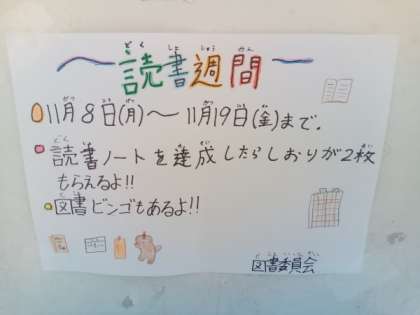 〜読書週間〜
11月8日(月)〜11月19日(金)まで.
読書ノートを達成したらしおりが2枚
もらえるよ!!
図書ビンゴもあるよ!!
図書委員会